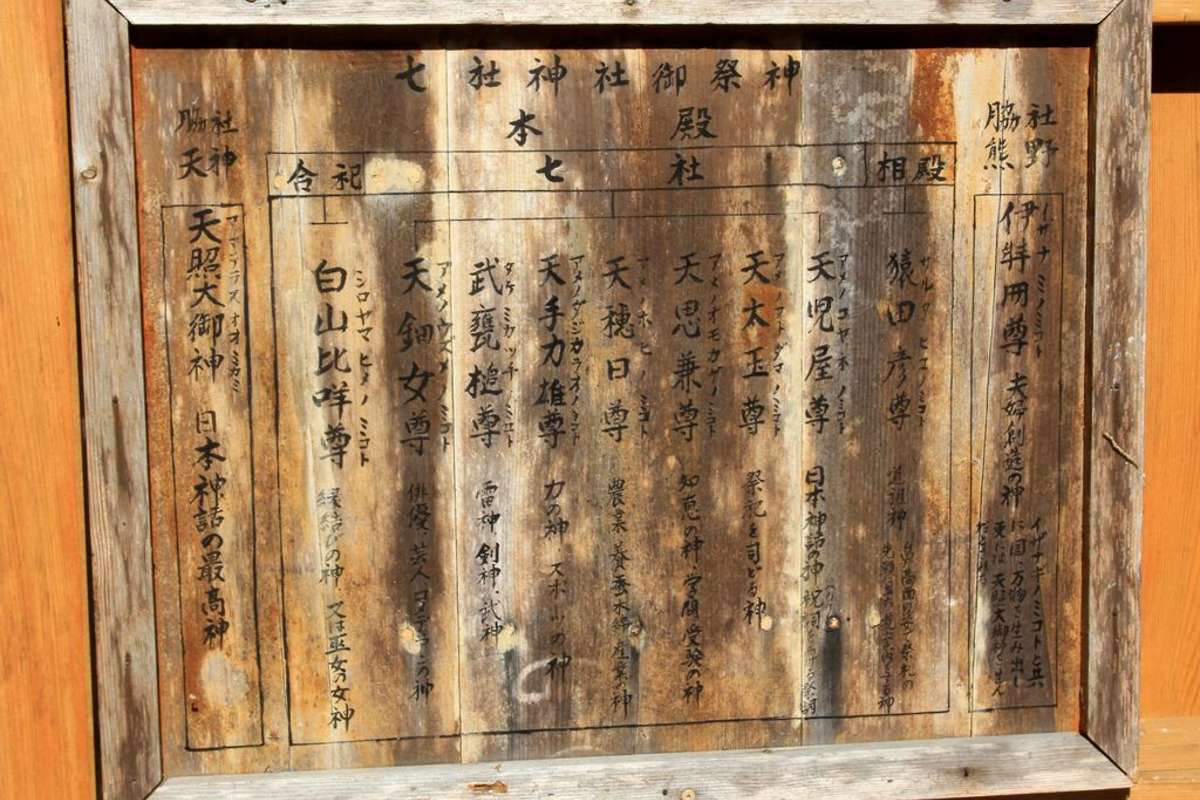 七社神社御祭神
本殿
脇社
熊野
イザナミノミコト
伊弉冊尊 夫婦創造の神
イザナギノミコトと共
に国、万物を生み出し
更には、天照大御神を
相殿
サルタヒコノミコト
猿田彦尊 道祖神
七社
アメノコヤネノミコト
天児屋尊 日本神話の神、祝詞
アメノフトダマノミコト
天太玉尊 祭祀を司どる神
アメノオモカゲノミコト
天思兼尊 知恵の神、学問、受験の神
アメノホヒノミコト
天穂日尊 農業、養蚕、木綿、産業の神
アメノタジカラオノミコト
天手力雄尊 力の神、スポーツの神
タケミカッチノミコト
武甕槌尊 雷神、剣神、武神
アメノウズメノミコト
天鈿女尊 俳優、芸人
合祀
シロヤマヒメノミコト
白山比咩尊 縁結びの神、又は巫女の女神
脇社
天神
アマテラスオオミカミ
天照大御神 日本神話の最高神